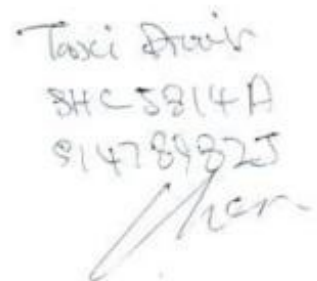 Taxi Driver
SHC5814A
S1478982J